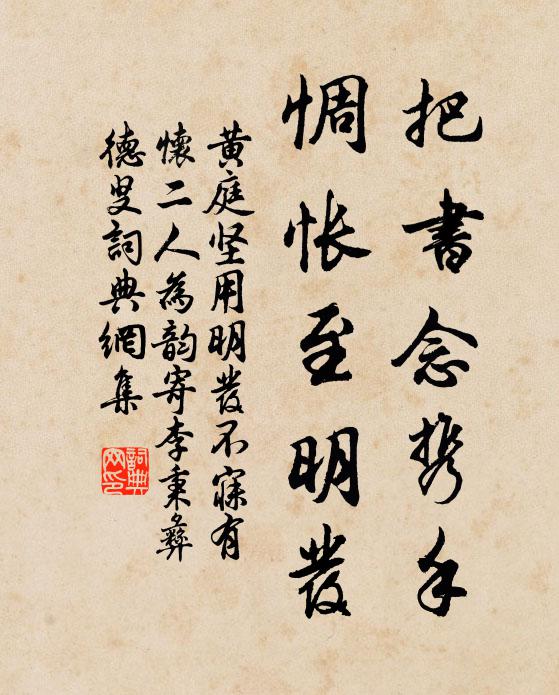 把書念携手
惆悵至明發
黄庭坚用明發不寐有
懷二人為韵寄李秉彝
德叟詞典網集
詞典網印